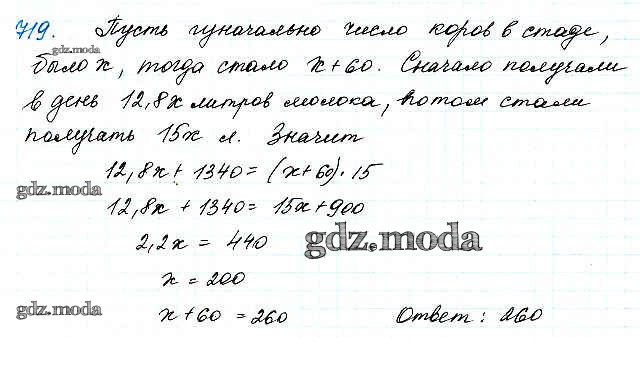 719. Пусть изначально число коров в стаде,
gdz.moda
было x, тогда стало x+60. Сначало получали
в день 12,8x литров молока, потом стали
получать 15x л. Значит
12,8x + 1340 = (x+60)·15
gdz.moda
12,8x + 1340 = 15x+900
2,2x = 440
gdz.moda
x = 200
gdz.moda
x+60 = 260 Ответ: 260